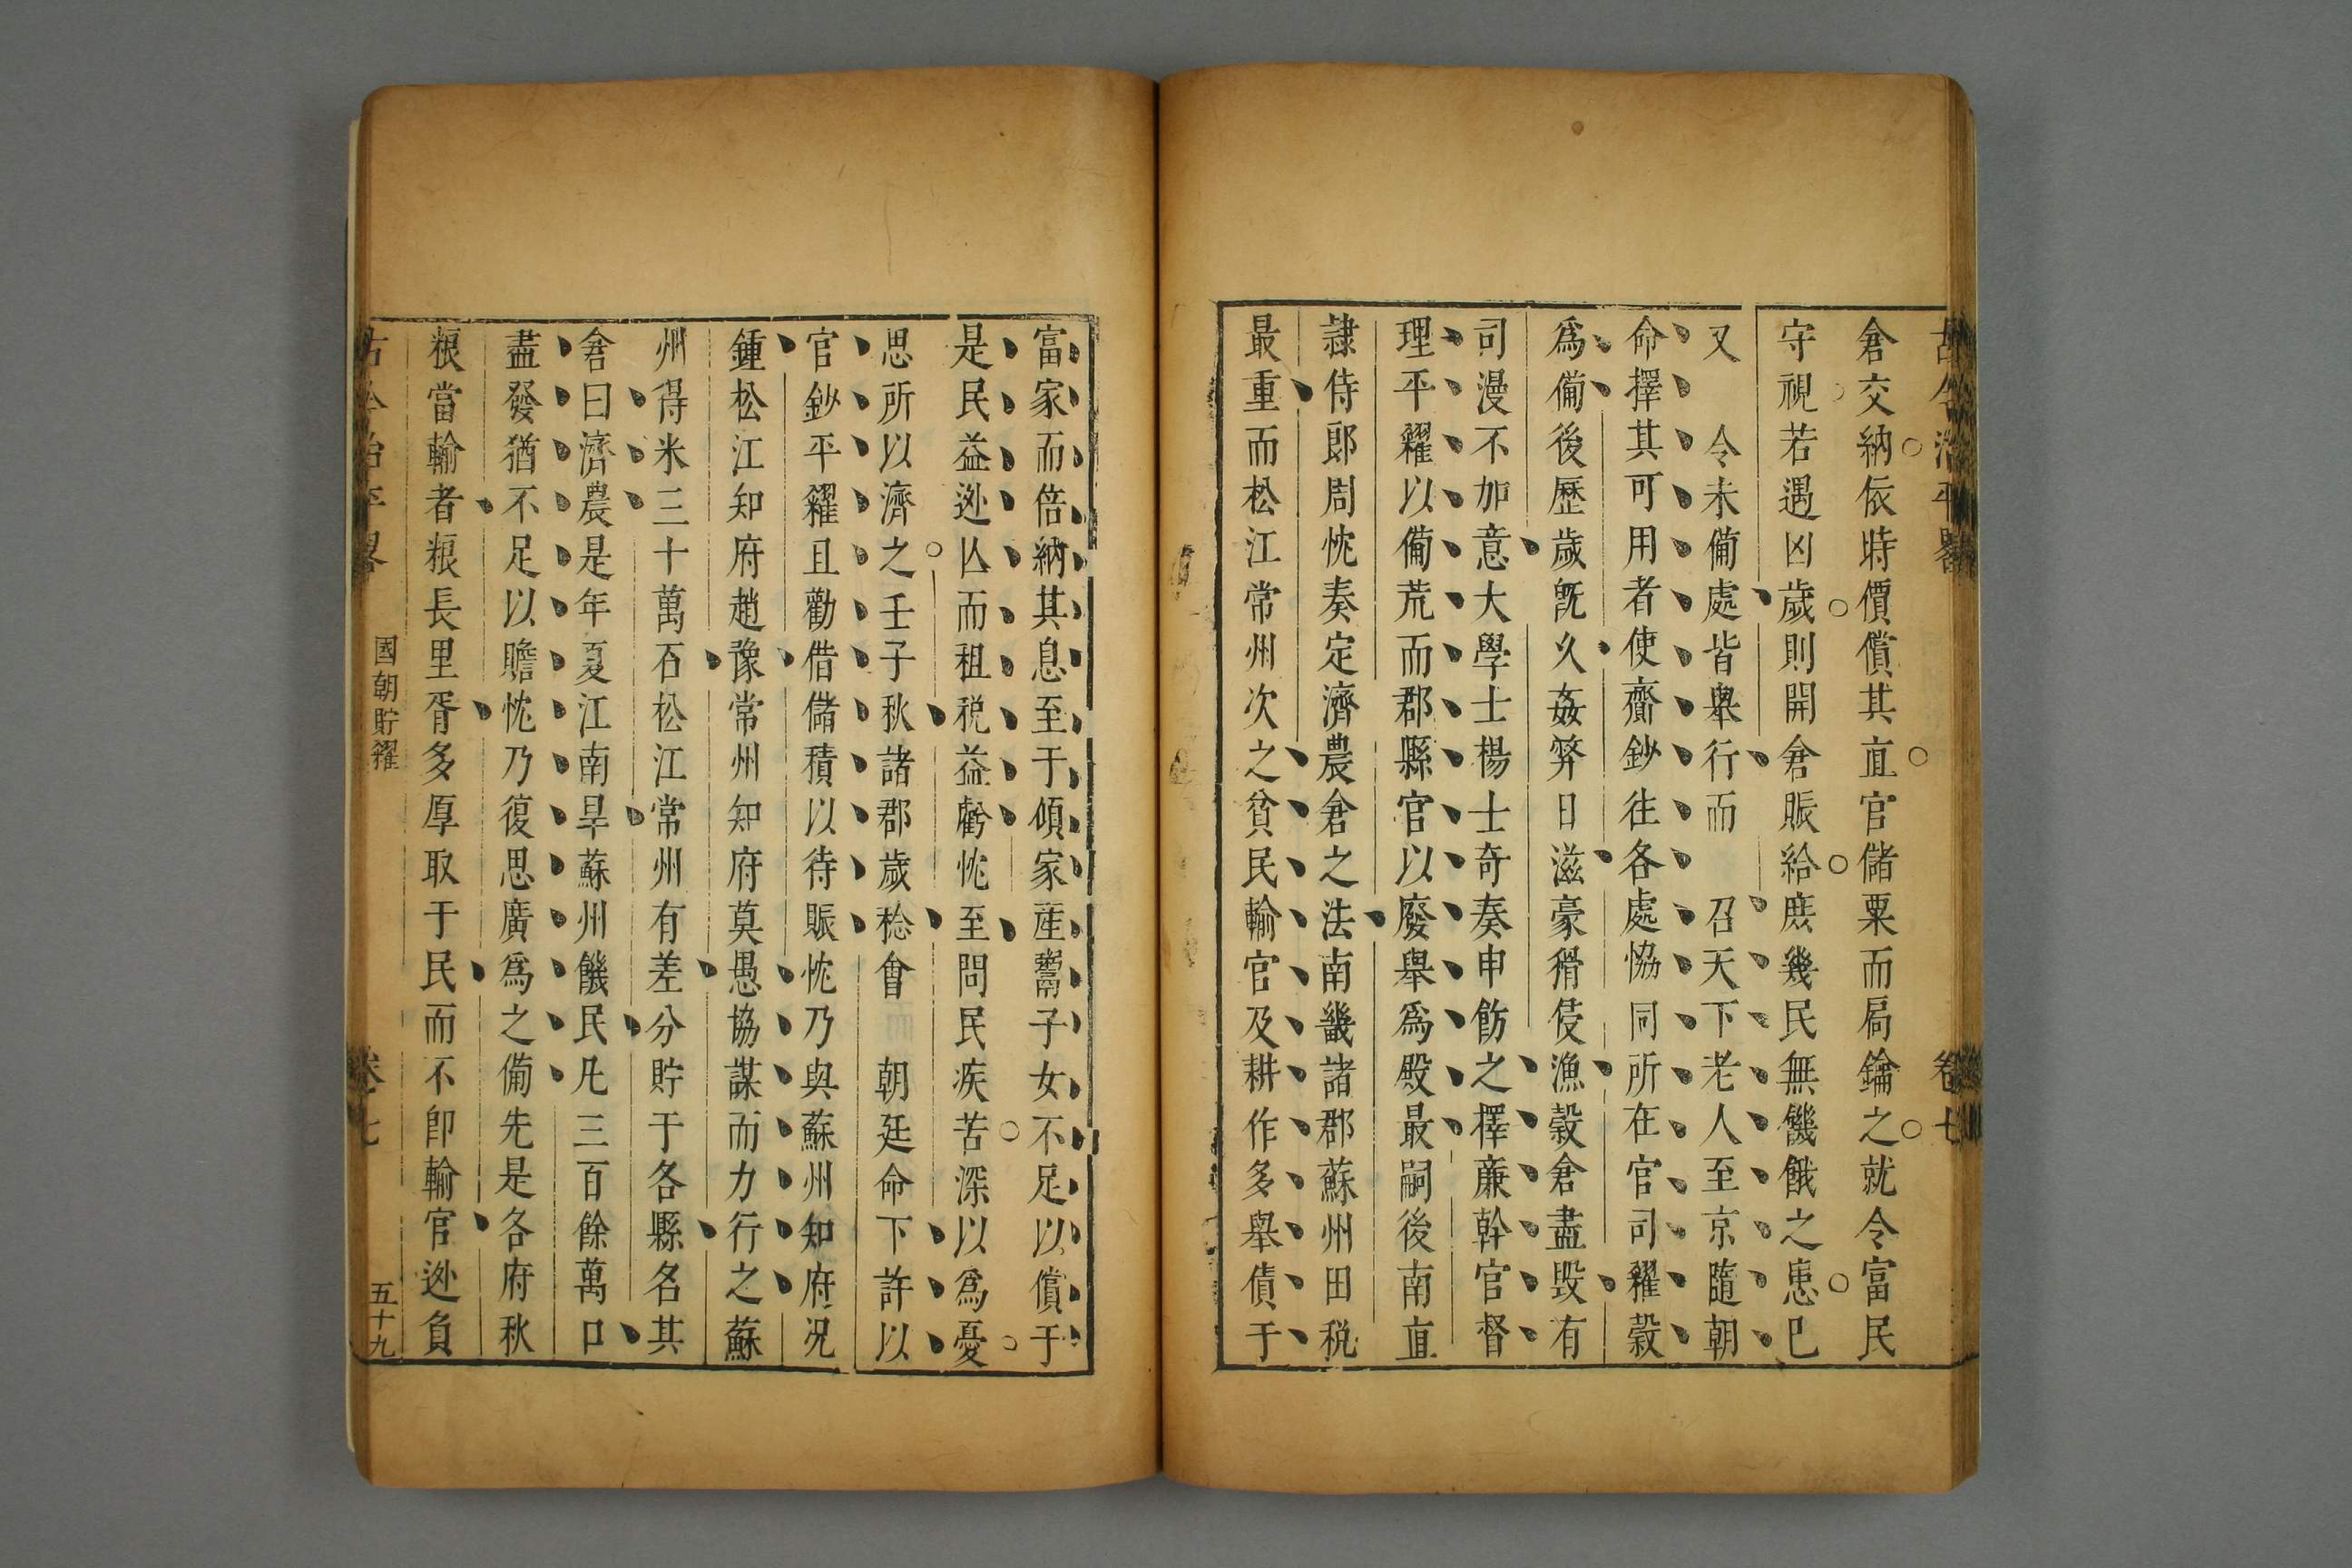 古今治平畧 卷七
倉交納依時價償其直官儲粟而扃鑰之就令富民
守視若遇凶歲則開倉賑給庶幾民無饑餓之患巳
又 令未備處皆舉行而 召天下老人至京隨朝
命擇其可用者使齎鈔往各處恊同所在官司糴穀
爲備後歷歲旣久姦弊日滋豪猾侵漁穀倉盡毀有
司漫不加意大學士楊士奇奏申飭之擇廉幹官督
理平糴以備荒而郡縣官以廢舉爲殿最嗣後南直
隷侍郎周忱奏定濟農倉之法南畿諸郡蘇州田稅
最重而松江常州次之貧民輸官及耕作多舉債于
富家而倍納其息至于傾家産鬻子女不足以償于
是民益逃亾而租稅益虧忱至問民疾苦深以爲憂
思所以濟之壬子秋諸郡歲稔會 朝廷命下許以
官鈔平糴且勸借儲積以待賑忱乃與蘇州知府况
鍾松江知府趙豫常州知府莫愚協謀而力行之蘇
州得米三十萬石松江常州有差分貯于各縣名其
倉曰濟農是年夏江南旱蘇州饑民凡三百餘萬口
盡發猶不足以贍忱乃復思廣爲之備先是各府秋
粮當輸者粮長里胥多厚取于民而不卽輸官逃負
古今治平畧 國朝貯糴 卷七 五十九